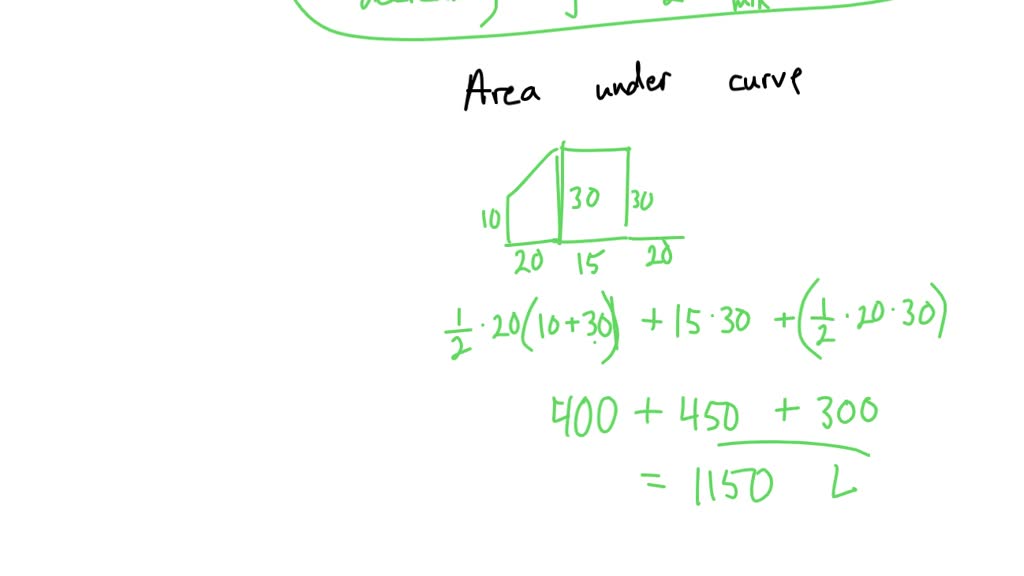 min
Area under curve
10 30 30
20 15 20
1/2 · 20(10+30) + 15·30 + (1/2 · 20 · 30)
400 + 450 + 300
= 1150 L